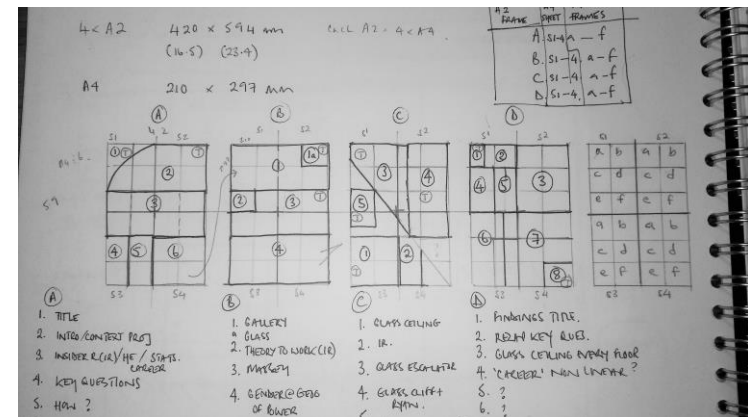 4 < A2 420 × 594 mm Each A2 = 4 < A4
(16.5) (23.4)
A4 210 × 297 mm
A2 FRAME SHEET FRAMES
A. S1-4 a - f
B. S1-4. a-f
C S1-4. a-f
D. S1-4. a-f
A B C D
S1 S2
1 T T
2
3
4 5 6
S3 S4
S2
1 1a T
2 3 T
4
S4
S1 S2
T
3 4
5 T T
1 2
T
S1 S2
1 T 2
4 5 3
6 7
8 T
S3 S4
S2
a b a b
c d c d
e f e f
a b a b
c d c d
e f e f
S3 S4
59
A
1. TITLE
2. INTRO/CONTEXT PROJ
3 INSIDER R(IR)/HE / STATS.
CAREER
4. KEY QUESTIONS
5. HOW ?
B
1. GALLERY
a GLASS
2. THEORY TO WORK (IR)
3. MASSEY
4. GENDER @ GEOG
OF POWER
C
1. GLASS CEILING
2. IR.
3. GLASS ESCALATOR
4. GLASS CLIFF
RYAN.
D
1. FINDINGS TITLE.
2. KEY QUES.
3. GLASS CEILING EVERY FLOOR
4. 'CAREER' NON LINEAR ?
5. ?
6. ?